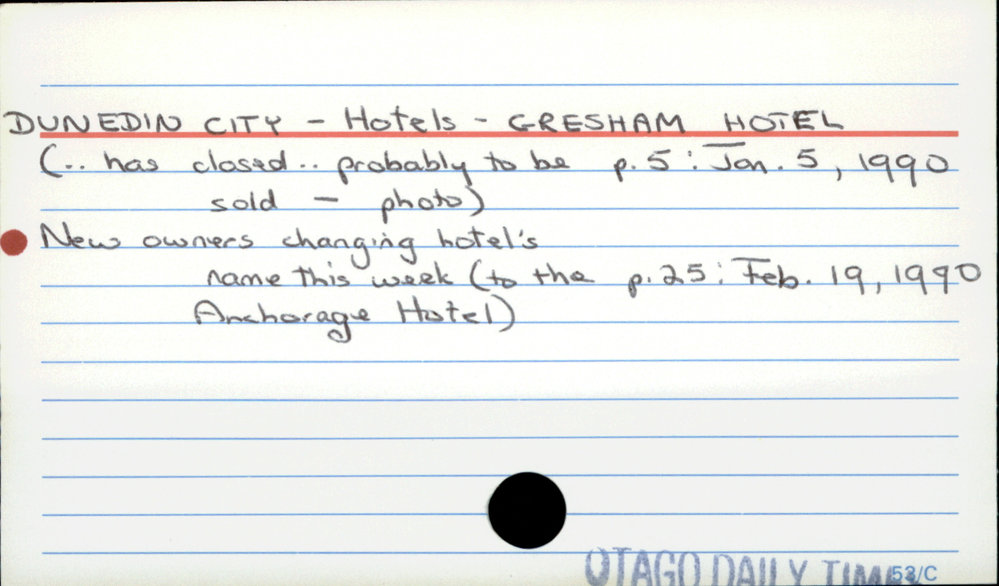 DUNEDIN CITY - Hotels - GRESHAM HOTEL
(.. has closed .. probably to be p. 5 : Jan. 5, 1990
sold - photo)
New owners changing hotel's
name this week (to the p. 25 : Feb. 19, 1990
Anchorage Hotel)
OTAGO DAILY TIMES
53/C